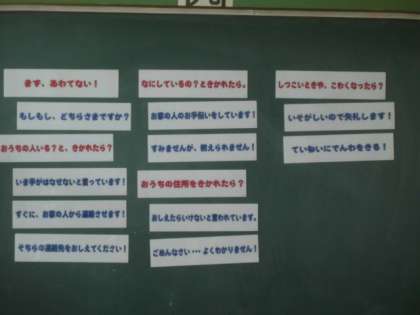 まず、あわてない！
もしもし、どちらさまですか？
おうちの人いる？と、きかれたら？
いま手がはなせないと言っています！
すぐに、お家の人から連絡させます！
そちらの連絡先をおしえてください！
なにしているの？ときかれたら。
お家の人のお手伝いをしています！
すみませんが、教えられません！
おうちの住所をきかれたら？
おしえたらいけないと言われています。
ごめんなさい・・・よくわかりません！
しつこいときや、こわくなったら？
いそがしいので失礼します！
ていねいにでんわをきる！